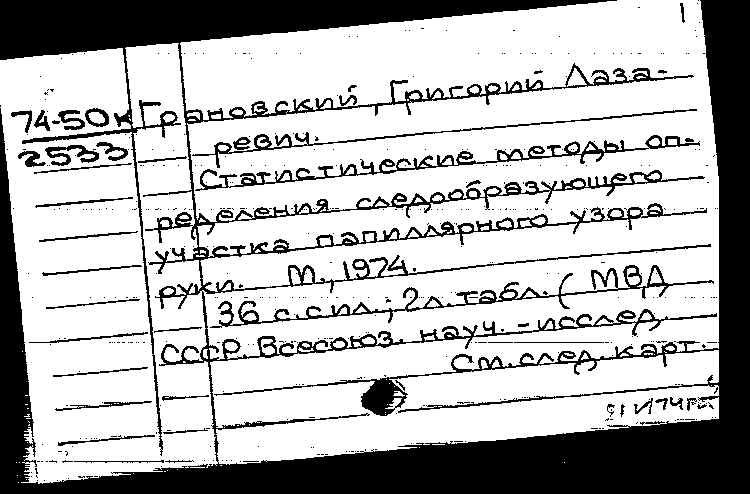 1
74-50к Грановский, Григорий Лаза-
2533 ревич.
Статистические методы оп-
ределения следообразующего
участка папиллярного узора
руки. М., 1974.
36 с. с ил.; 2 л. табл. (МВД
СССР. Всесоюз. науч. - исслед.
См. след. карт.